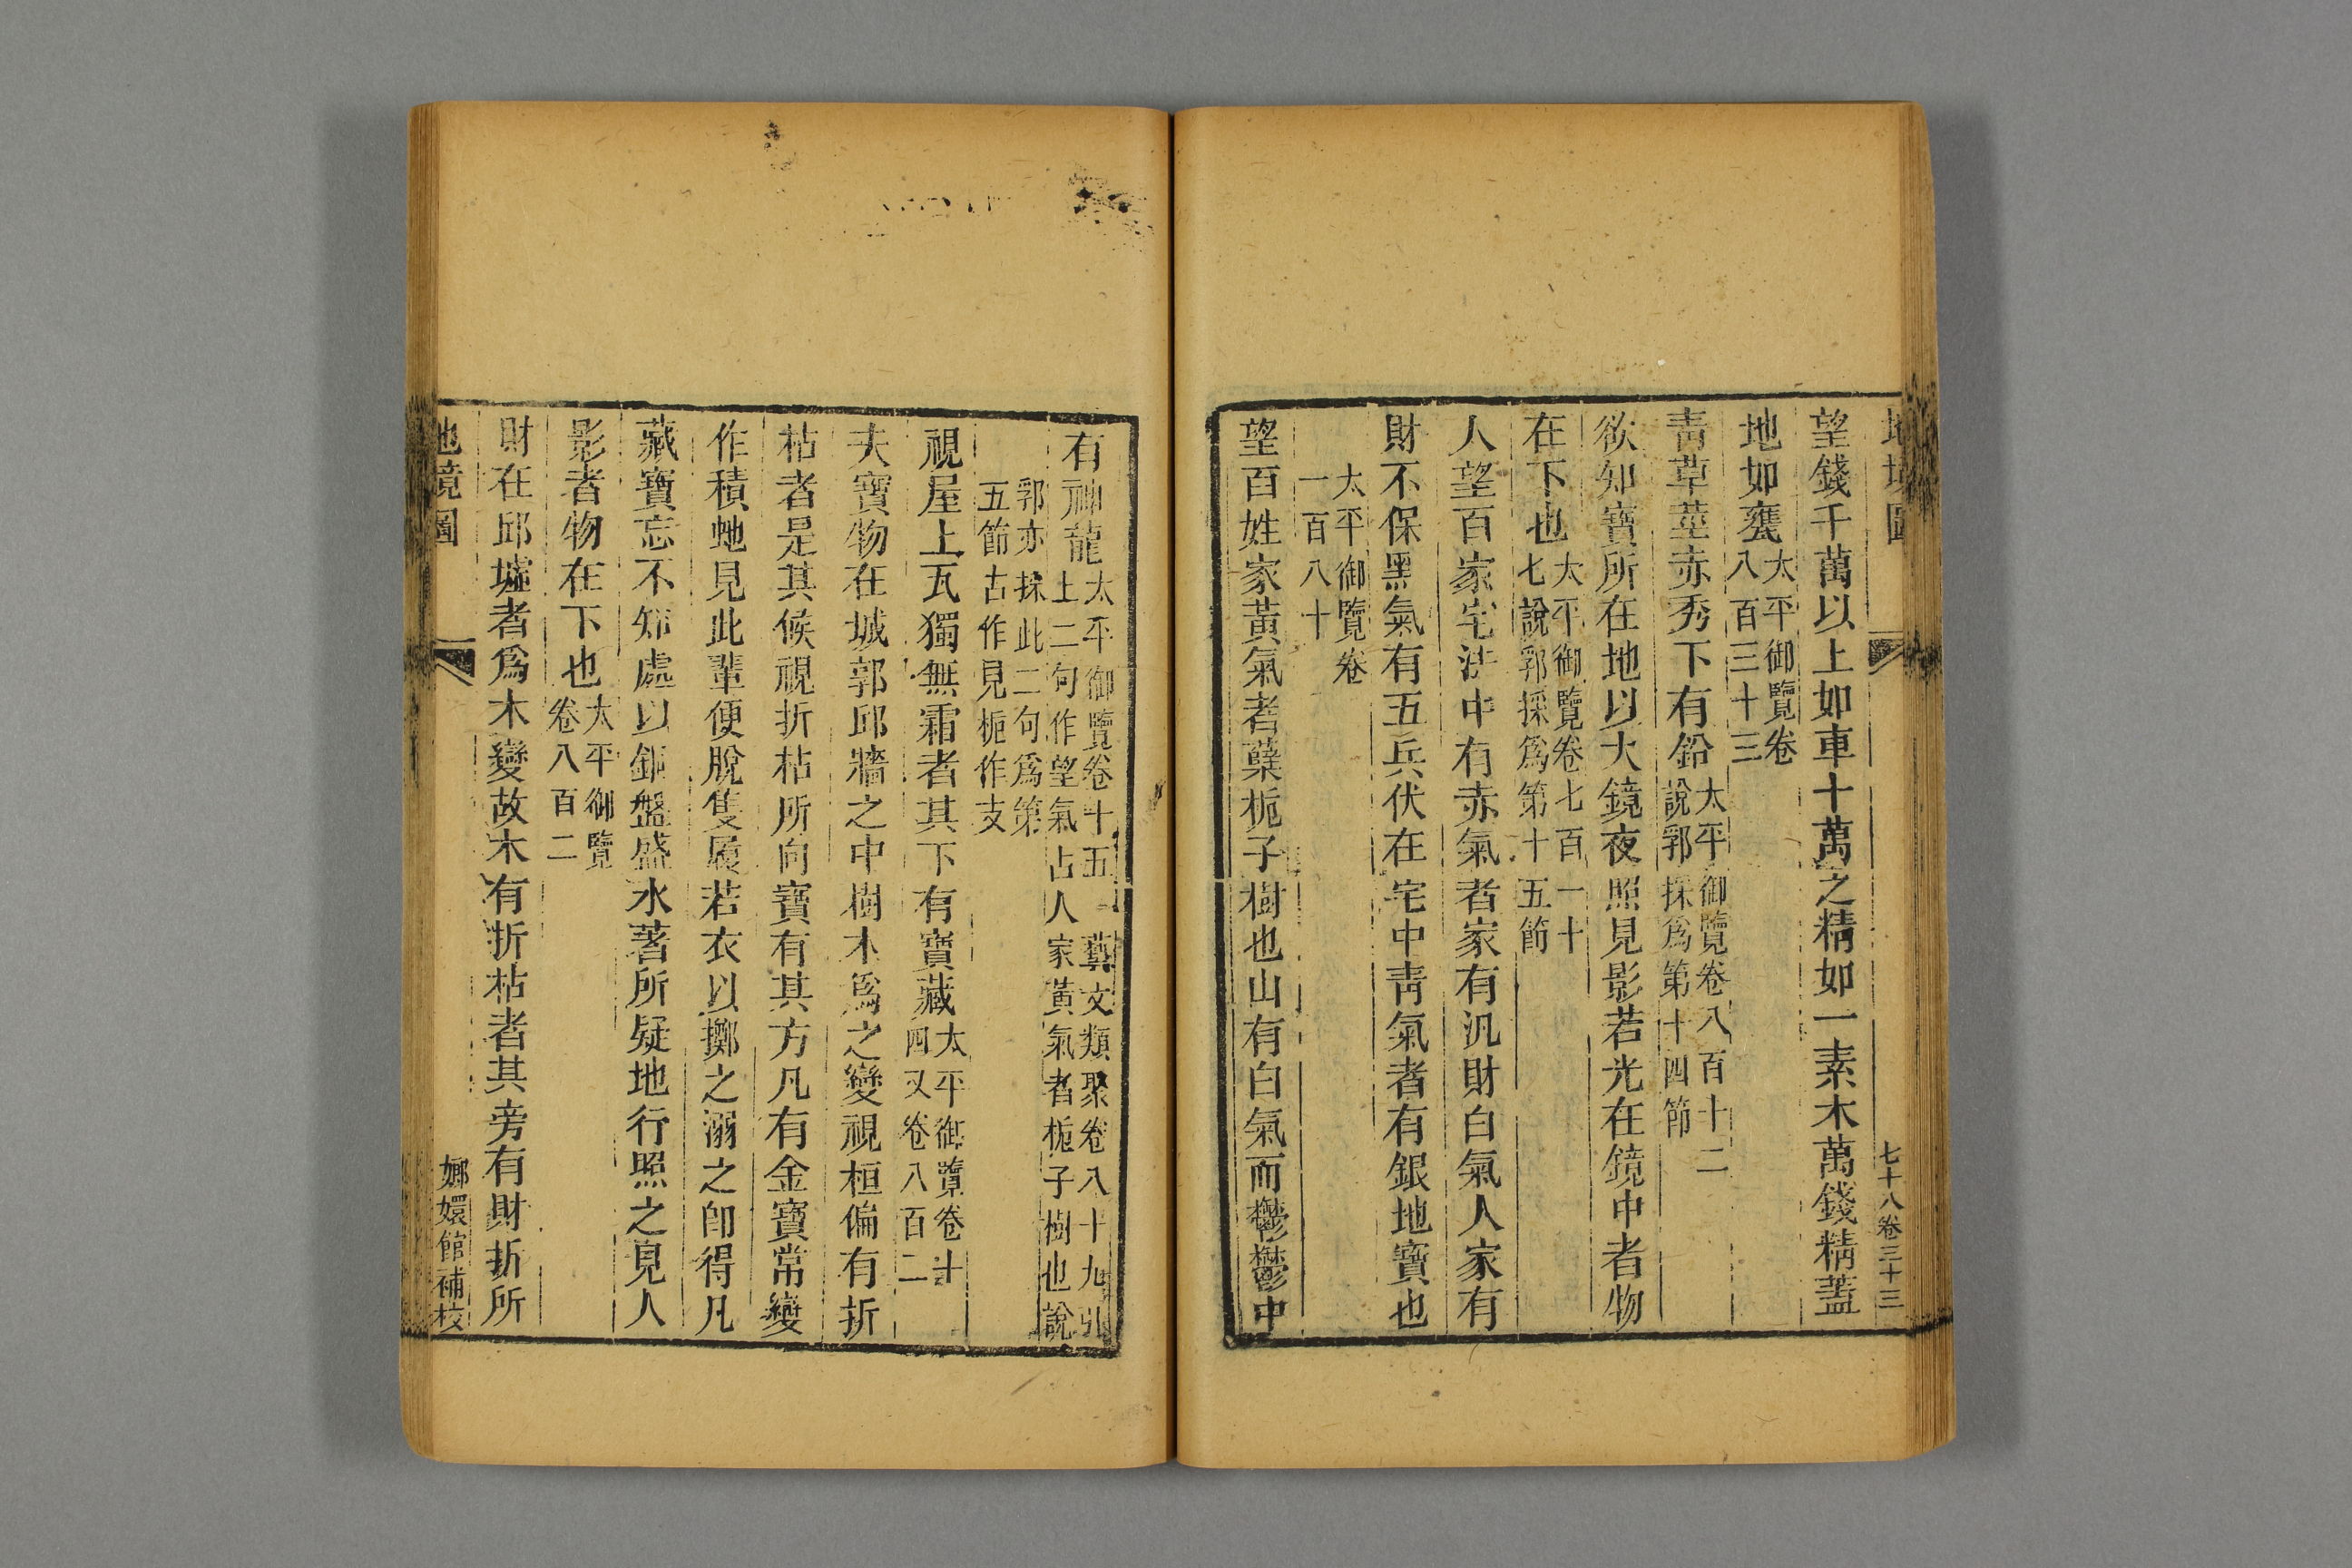 地境圖
七十八卷三十三
望錢千萬以上如車十萬之精如一素木萬錢精蓋
地如甕太平御覽卷八百三十三
靑草莖赤秀下有鉛太平御覽卷八百十二說郛採爲第十四節
欲知寶所在地以大鏡夜照見影若光在鏡中者物
在下也太平御覽卷七百一十七說郛採爲第十五節
人望百家宅法中有赤氣者家有汎財白氣人家有
財不保黑氣有五兵伏在宅中靑氣者有銀地寶也
太平御覽卷一百八十
望百姓家黃氣者蘖梔子樹也山有白氣而鬱鬱中
有神龍太平御覽卷十五 藝文類聚卷八十九引上二句作望氣占人家黃氣者梔子樹也說
郛亦採此二句爲第五節古作見梔作支
視屋上瓦獨無霜者其下有寶藏太平御覽卷十四又卷八百二
夫寶物在城郭邱牆之中樹木爲之變視桓偏有折
枯者是其候視折枯所向寶有其方凡有金寶常變
作積虵見此輩便脫隻履若衣以擲之溺之卽得凡
藏寶忘不知處以銅盤盛水著所疑地行照之見人
影者物在下也太平御覽卷八百二
財在邱墟者爲木變故木有折枯者其旁有財折所
地境圖
嫏嬛館補校